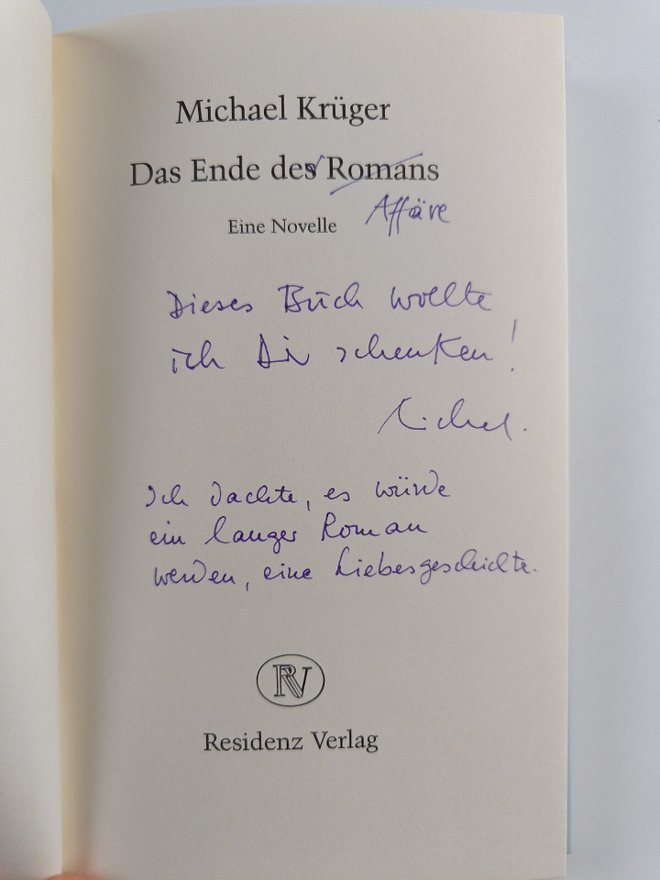 Michael Krüger
Das Ende der Romans
Affäre
Eine Novelle
Dieses Buch wollte
ich Dir schenken!
Michael.
Ich dachte, es würde
ein langer Roman
werden, eine Liebesgeschichte.
RV
Residenz Verlag